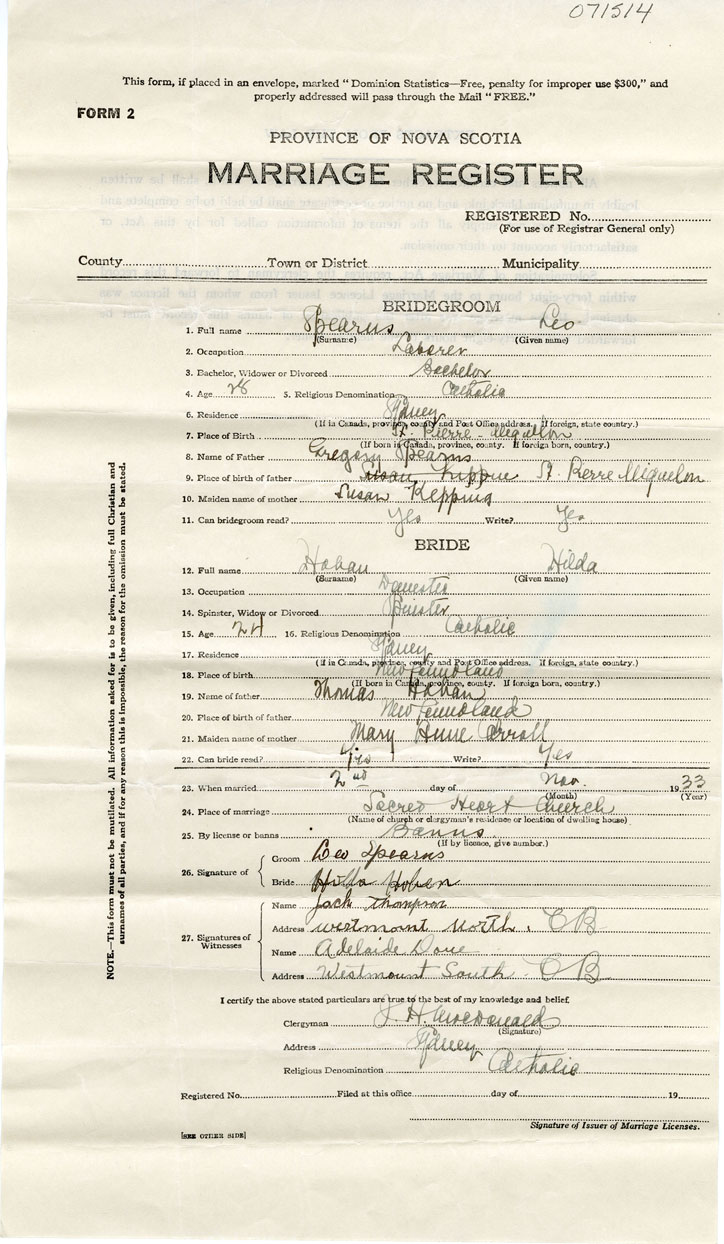 071514
This form, if placed in an envelope, marked "Dominion Statistics—Free, penalty for improper use $300," and
properly addressed will pass through the Mail "FREE."
FORM 2
PROVINCE OF NOVA SCOTIA
MARRIAGE REGISTER
REGISTERED No.
(For use of Registrar General only)
County Town or District Municipality
BRIDEGROOM
1. Full name Spearns Leo
(Surname) (Given name)
2. Occupation Laborer
3. Bachelor, Widower or Divorced Bachelor
4. Age 28 5. Religious Denomination Catholic
6. Residence Sydney
(If in Canada, province, county and Post Office address. If foreign, state country.)
7. Place of Birth St. Pierre - Miquelon
(If born in Canada, province, county. If foreign born, country.)
8. Name of Father Gregory Spearns
9. Place of birth of father Susan Kippin St. Pierre Miquelon
10. Maiden name of mother Susan Kepping
11. Can bridegroom read? Yes Write? Yes
BRIDE
12. Full name Hoban Hilda
(Surname) (Given name)
13. Occupation Domestic
14. Spinster, Widow or Divorced Spinster
15. Age 24 16. Religious Denomination Catholic
17. Residence Sydney
(If in Canada, province, county and Post Office address. If foreign, state country.)
18. Place of birth Newfoundland
(If born in Canada, province, county. If foreign born, country.)
19. Name of father Thomas Hoban
20. Place of birth of father Newfoundland
21. Maiden name of mother Mary Anne Carroll
22. Can bride read? Yes Write? Yes
23. When married 2nd day of Nov. 1933
(Month) (Year)
24. Place of marriage Sacred Heart Church
(Name of church or clergyman's residence or location of dwelling house)
25. By license or banns Banns
(If by licence, give number.)
26. Signature of
Groom Leo Spearns
Bride Hilda Hoben
27. Signatures of Witnesses
Name Jack Thompson
Address Westmount North. CB
Name Adelaide Dove
Address Westmount South CB
I certify the above stated particulars are true to the best of my knowledge and belief.
Clergyman J. H. Macdonald
(Signature)
Address Sydney
Religious Denomination Catholic
Registered No. Filed at this office day of 19
Signature of Issuer of Marriage Licenses.
[SEE OTHER SIDE]
NOTE.—This form must not be mutilated. All information asked for is to be given, including full Christian and
surnames of all parties, and if for any reason this is impossible, the reason for the omission must be stated.